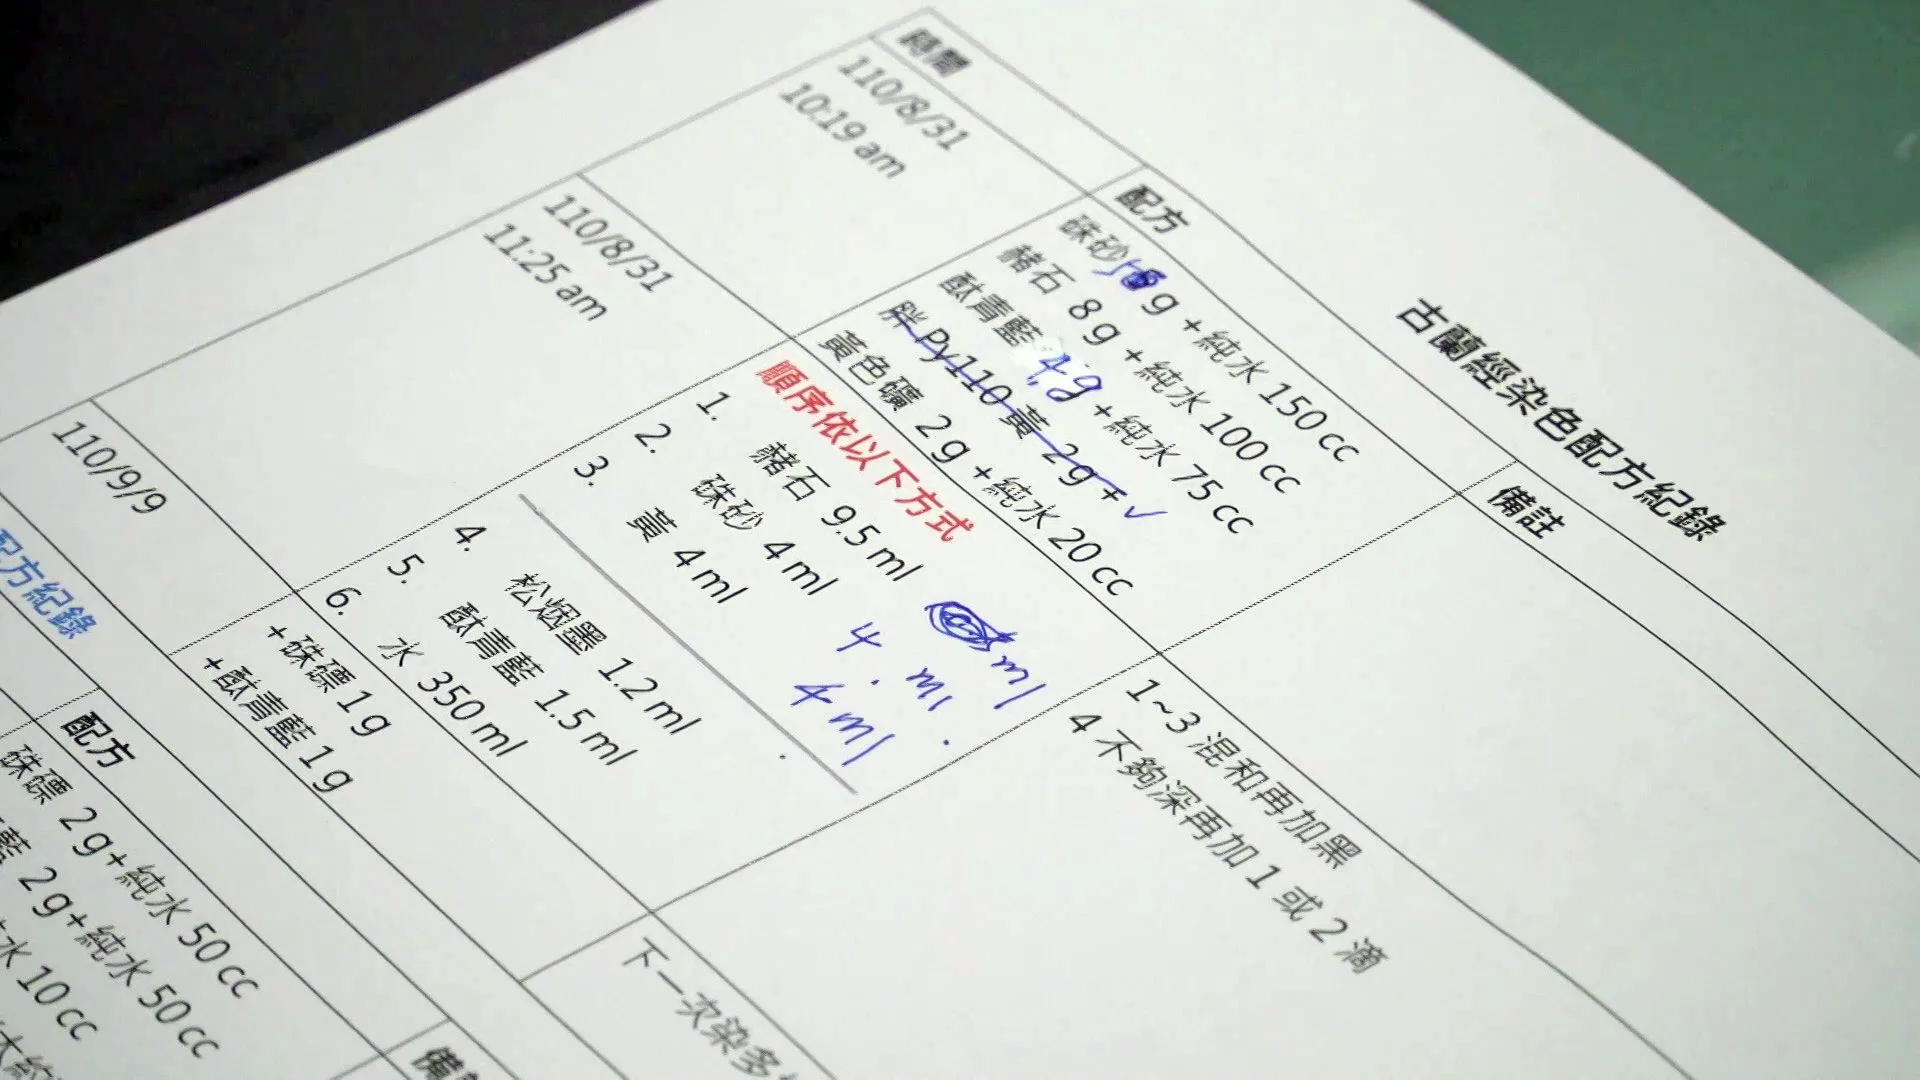 古蘭經染色配方紀錄
時間
配方
備註
110/8/31
10:19 am
硃砂 g +純水 150 cc
赭石 8 g +純水 100 cc
酞青藍 4.g +純水 75 cc
胖 Py110 黃 2g +
黃色礦 2 g +純水 20 cc
110/8/31
11:25 am
順序依以下方式
1. 赭石 9.5 ml ml
2. 硃砂 4 ml 4 . ml
3. 黃 4 ml 4 ml
4. 松烟墨 1.2 ml
5. 酞青藍 1.5 ml
6. 水 350 ml
1~3 混和再加黑
4 不夠深再加 1 或 2 滴
110/9/9
+硃磦 1 g
+酞青藍 1 g
下一次染多
配方紀錄
配方
備註
硃磦 2 g+純水 50 cc
藍 2 g+純水 50 cc
水 10 cc